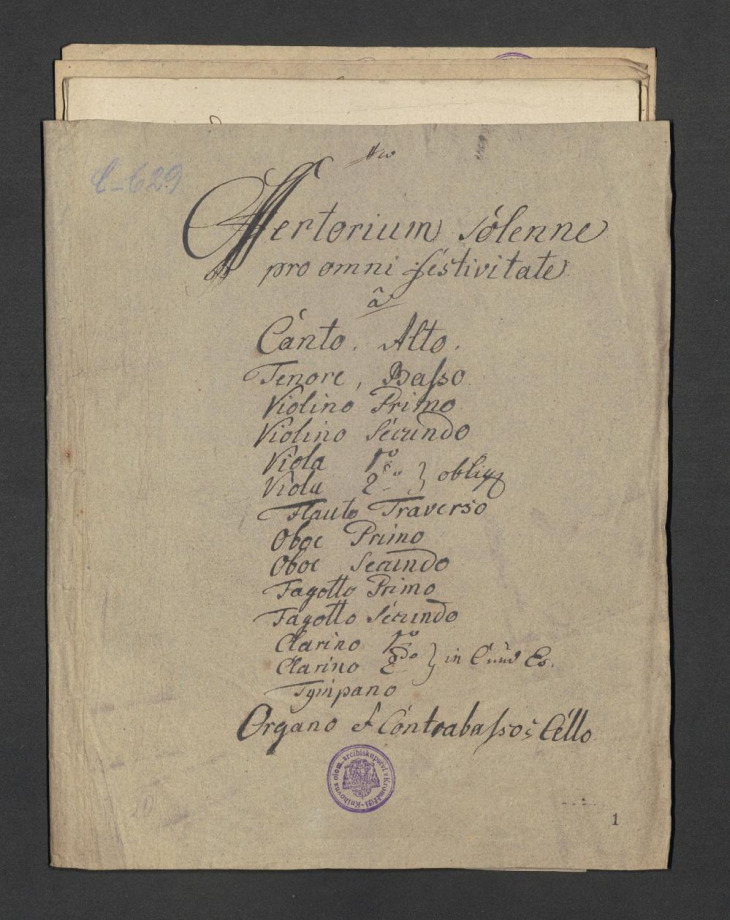 Nro
C-629
Offertorium solenne
pro omni festivitate
â
Canto. Alto.
Tenore, Basso
Violino Primo
Violino Secundo
Viola 1mo
Viola 2do } oblig
Flauto Traverso
Oboe Primo
Oboe Secundo
Fagotto Primo
Fagotto Secundo
Clarino 1mo
Clarino 2do } in
Tympano
Organo et Contrabasso
Knihovna olom. arcibiskupství v Kroměříži
1